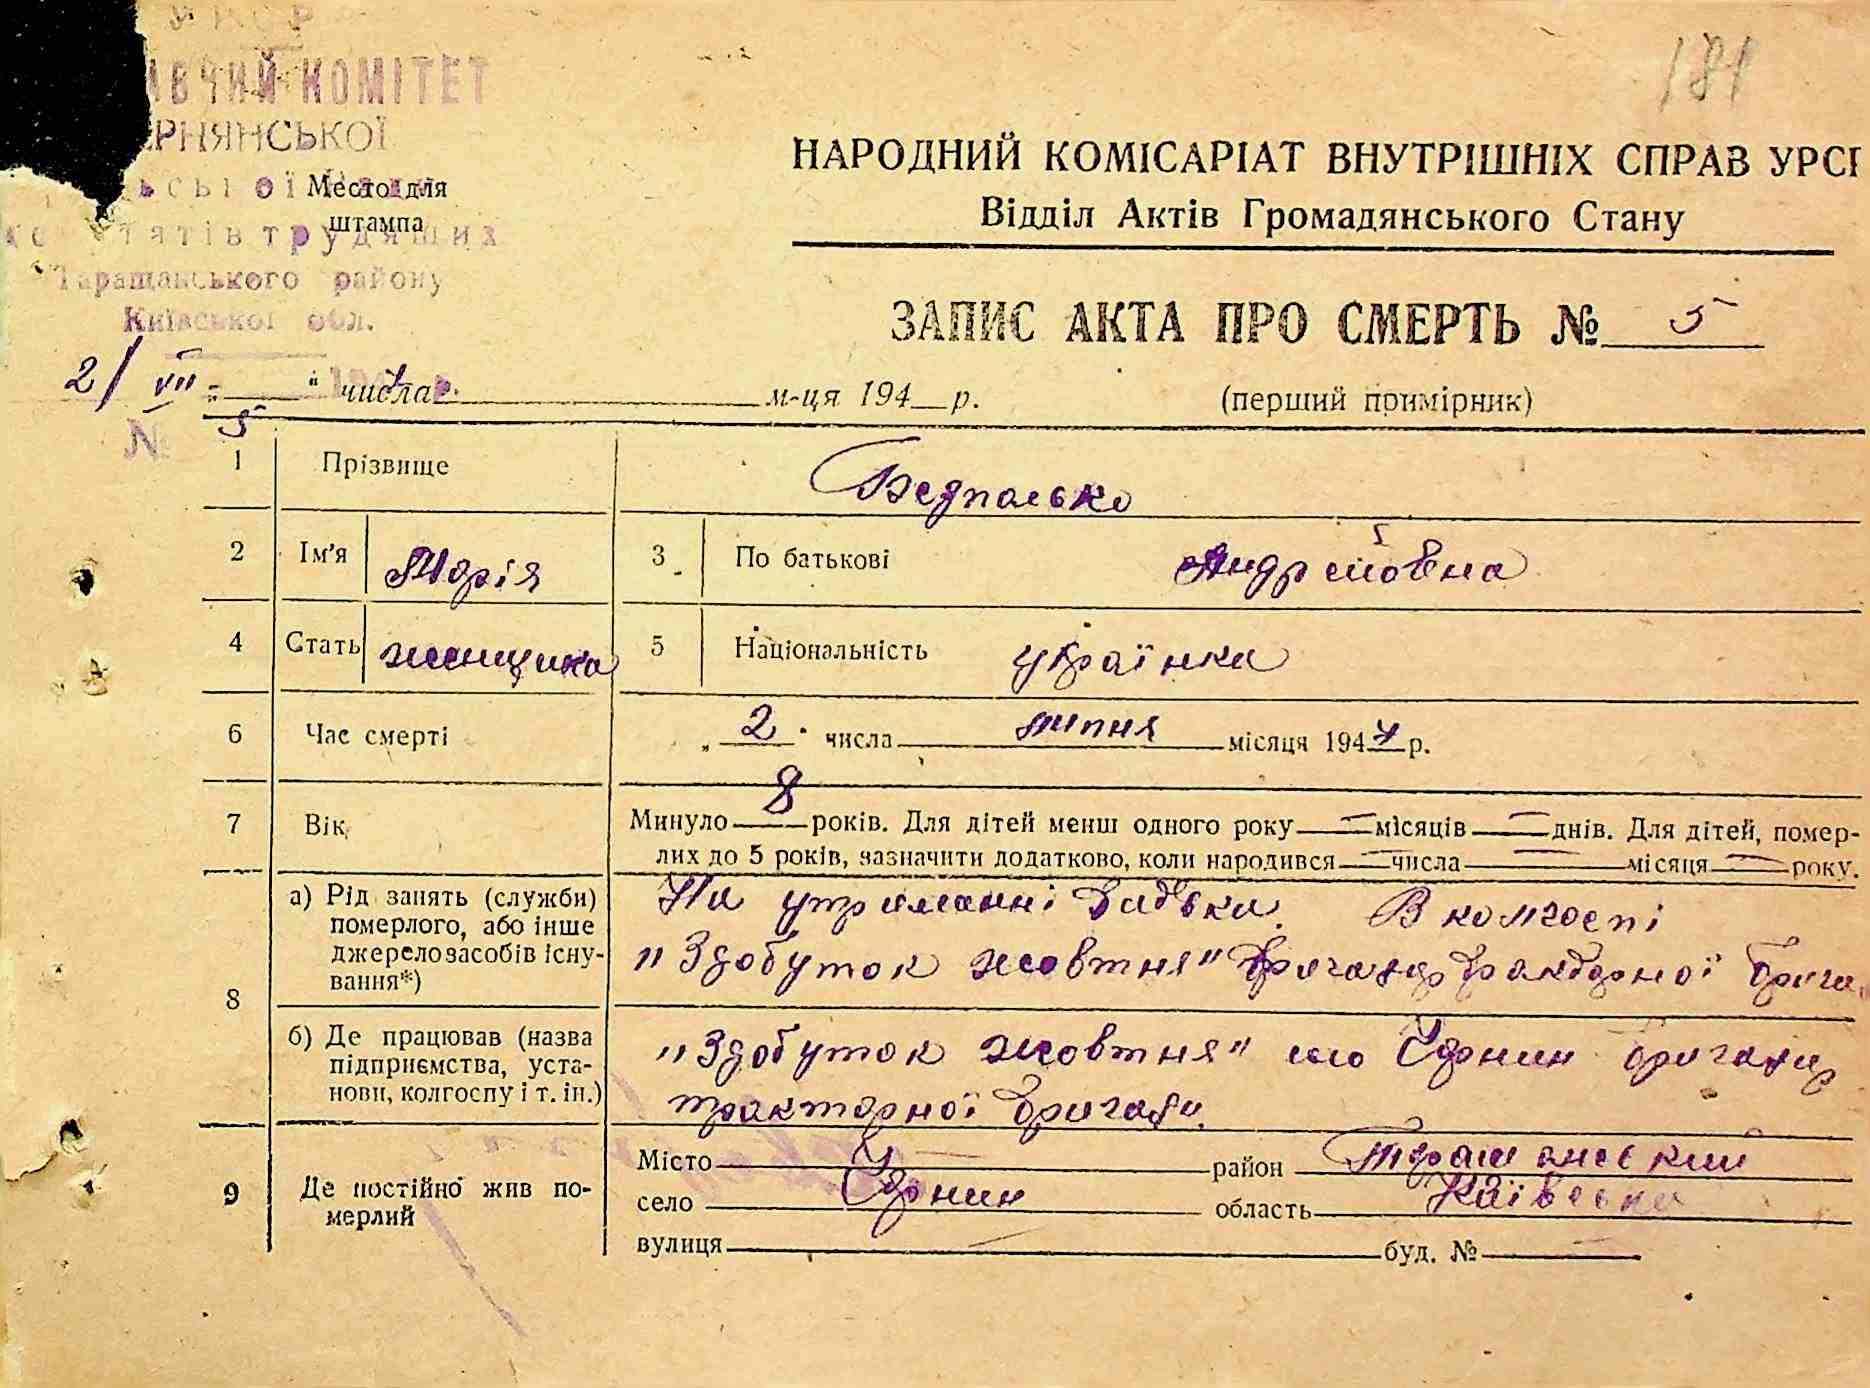 181
АВЧИЙ КОМІТЕТ
ЕРНЯНСЬКОЇ
Место для
штампа
трудящих
Таращанського району
Київської обл.
2/VII
№ 5
НАРОДНИЙ КОМІСАРІАТ ВНУТРІШНІХ СПРАВ УРСР
Відділ Актів Громадянського Стану
ЗАПИС АКТА ПРО СМЕРТЬ № 5
„ “ числа м-ця 194 р.
(перший примірник)
1 Прізвище Бедполько
2 Ім'я Марія 3 По батькові Андрейовна
4 Стать женщина 5 Національність українка
6 Час смерті „ 2 “ числа липня місяця 1944 р.
7 Вік Минуло 8 років. Для дітей менш одного року — місяців — днів. Для дітей, помер-
лих до 5 років, зазначити додатково, коли народився — числа — місяця — року.
8 а) Рід занять (служби)
померлого, або інше
джерело засобів існу-
вання*)
На утриманні батька. В колгоспі
"Здобуток жовтня" бригадир тракторної брига
б) Де працював (назва
підприємства, уста-
нови, колгоспу і т. ін.)
"Здобуток жовтня" село Чернин бригадир
тракторної бригади.
9 Де постійно жив по-
мерлий
Місто — район Таращанський
село Чернин область Київська
вулиця — буд. № —